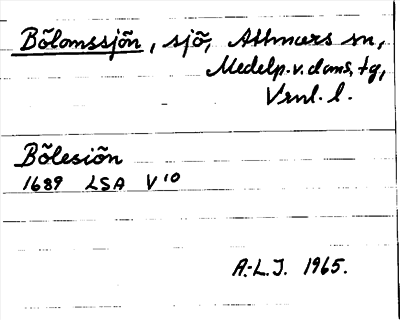 Bölomssjön, sjö, Attmars sn,
Medelp. v. doms. tg,
Vrnl. l.
Bölesiön
1689 LSA V¹⁰
A.-L.J. 1965.